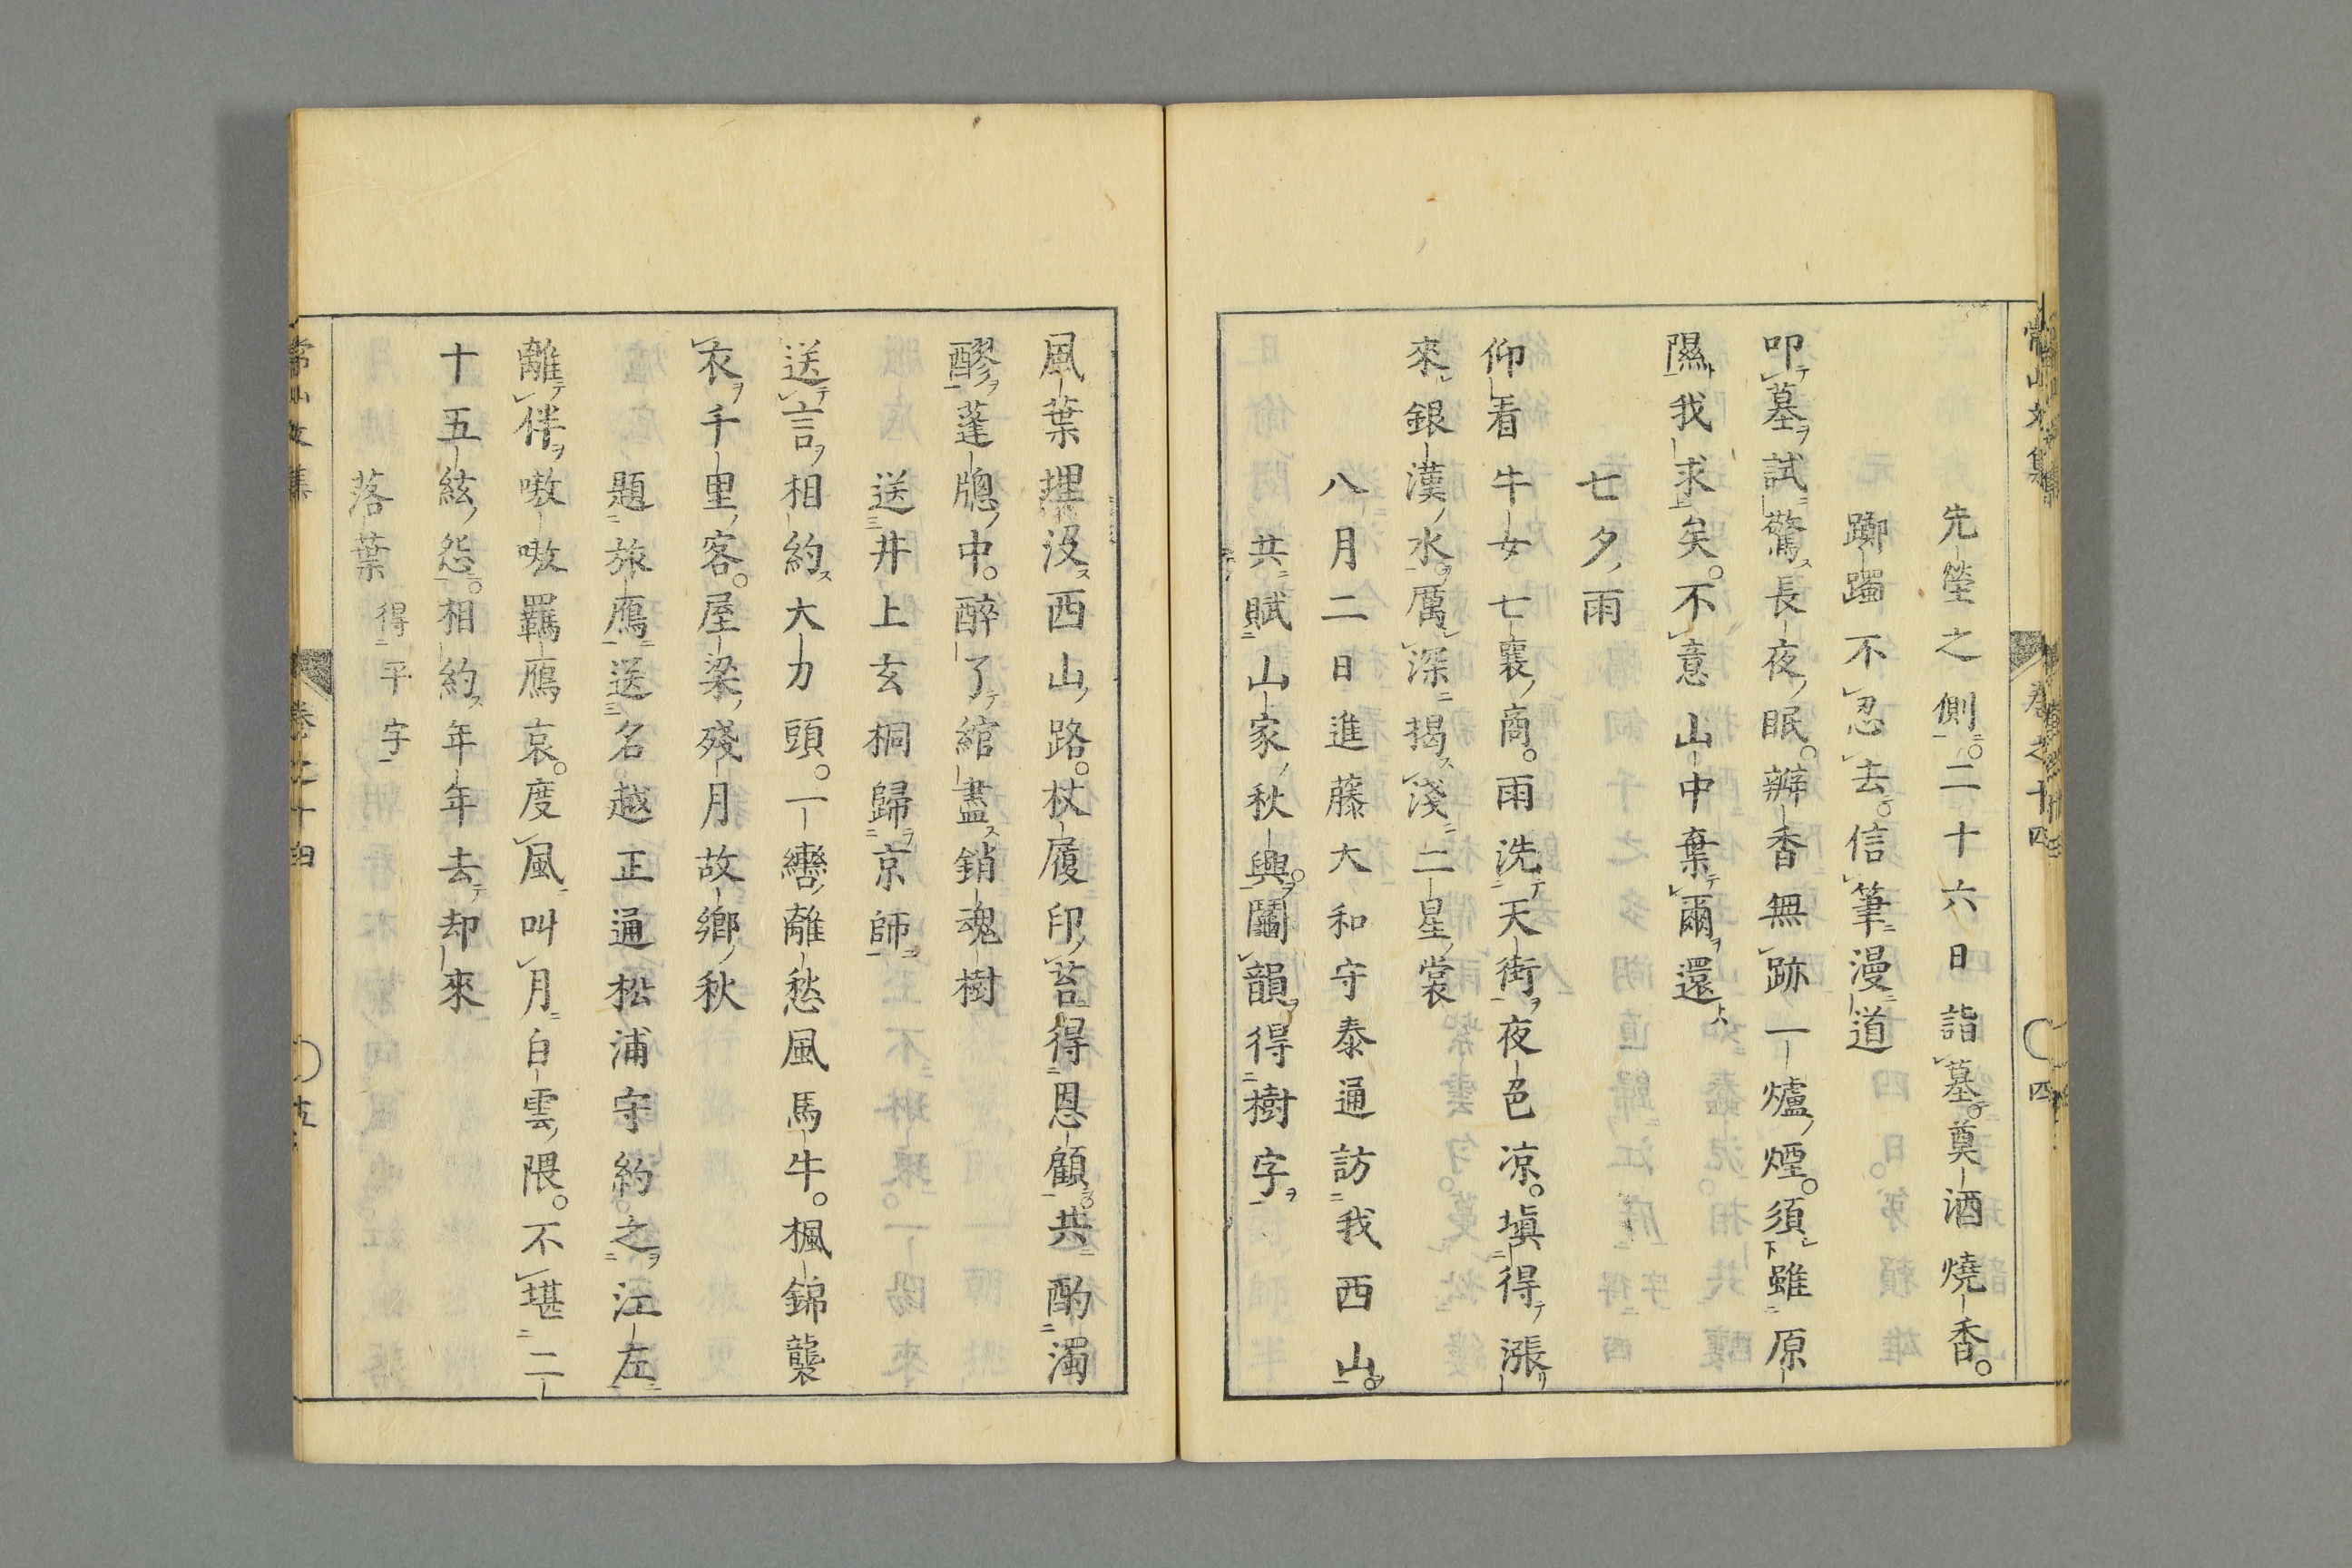 先塋之側。二十六日詣墓。奠酒燒香。
躑躅不忍去。信筆漫道
叩墓試驚長夜眠。辦香無跡一爐煙。須雖原
隰我求矣。不意山中棄爾還
七夕雨
仰看牛女七襄商。雨洗天街夜色凉。塡得漲
來銀漢水。厲深揭淺二星裳
八月二日進藤大和守泰通訪我西山。
共賦山家秋興。鬮韻得樹字
風葉埋沒西山路。杖履印苔得恩顧。共酌濁
醪蓬牕中。醉了綰盡銷魂樹
送井上玄桐歸京師
送言相約大刀頭。一轡離愁風馬牛。楓錦襲
衣千里客。屋梁殘月故鄉秋
題旅鴈送名越正通松浦守約之江左
離伴嗷嗷羈鴈哀。度風叫月白雲隈。不堪二
十五絃怨。相約年年去却來
落葉 得平字
常山文集 卷之十四 四
常山文集 卷之十四 五